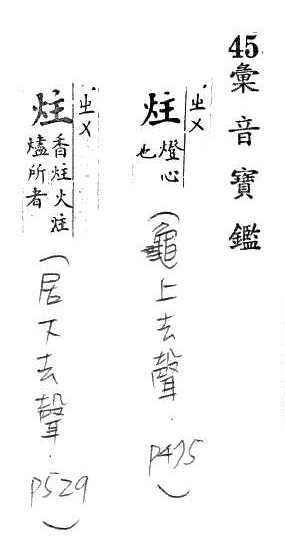 45彙音寶鑑
炷 ㄓㄨ
燈心
也
(龜上去聲. P475)
炷 ㄓㄨ
香炷火炷
燼所者
(居下去聲. P529)